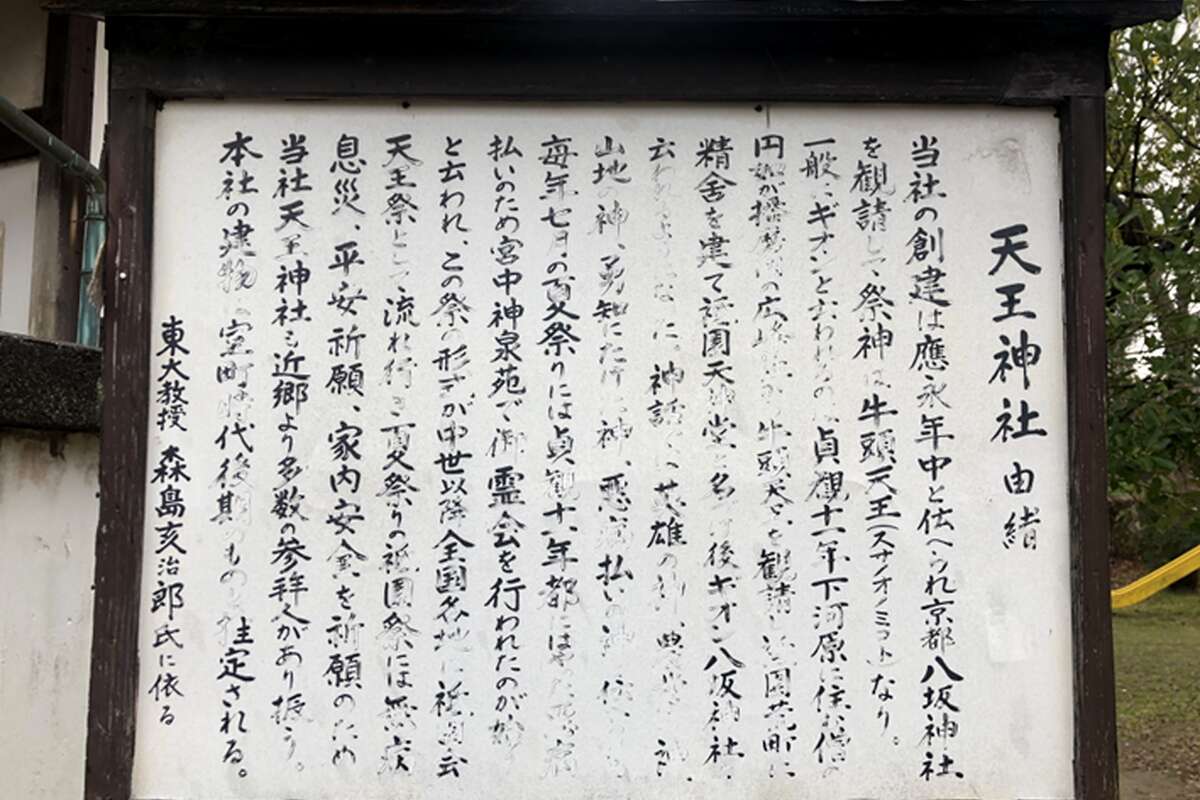 天王神社由緒
当社の創建は應永年中と伝へられ京都八坂神社
を観請して、祭神は牛頭天王(スサノオノミコト)なり。
一般にギオンと云われるのは貞観十一年下河原に住む僧の
円 が播磨国の広峰 牛頭天王を観請し 祇園荒町に
精舎を建て祇園天神堂と名 後ギオン八坂神社
云われ なった。神話 英雄の
山地の神、勇知にたけた神、悪病払いの神
毎年七月の夏祭りには貞観十一年都にはやった 病
払いのため宮中神泉苑で御霊会を行われたのが始
と云われ、この祭の形式が中世以降全国各地に祇園会
天王祭として、流れ行き夏祭りの祇園祭には無病
息災、平安祈願、家内安全を祈願のため
当社天王神社も近郷より多数の参拝人があり振う。
本社の建物は室町時代後期のものと推定される。
東大教授 森島亥治郎氏に依る